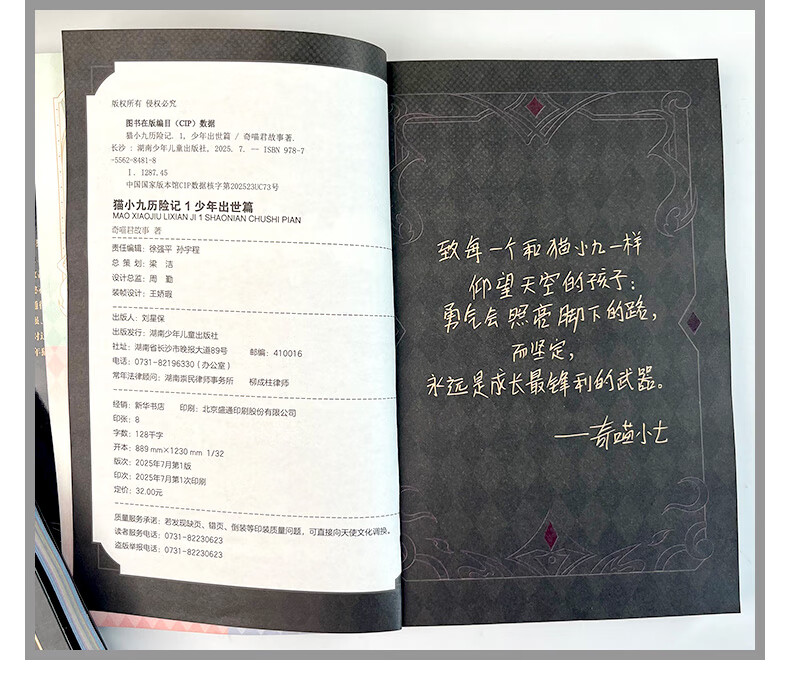 版权所有 侵权必究
图书在版编目（CIP）数据
猫小九历险记. 1, 少年出世篇 / 奇喵君故事著.
长沙 : 湖南少年儿童出版社, 2025. 7. -- ISBN 978-7
-5562-8481-8
Ⅰ. I287.45
中国国家版本馆CIP数据核字第202523UC73号
猫小九历险记 1 少年出世篇
MAO XIAOJIU LIXIAN JI 1 SHAONIAN CHUSHI PIAN
奇喵君故事 著
责任编辑：徐强平 孙宇程
总 策 划：梁 洁
设计总监：周 勤
装帧设计：王娇瑕
出版人：刘星保
出版发行：湖南少年儿童出版社
社址：湖南省长沙市晚报大道89号 邮编：410016
电话：0731-82196330（办公室）
常年法律顾问：湖南崇民律师事务所 柳成柱律师
经销：新华书店 印刷：北京盛通印刷股份有限公司
印张：8
字数：128千字
开本：889 mm×1230 mm 1/32
版次：2025年7月第1版
印次：2025年7月第1次印刷
定价：32.00元
质量服务承诺：若发现缺页、错页、倒装等印装质量问题，可直接向天使文化调换。
读者服务电话：0731-82230623
盗版举报电话：0731-82230623
致每一个和猫小九一样
仰望天空的孩子：
勇气会照亮脚下的路，
而坚定，
永远是成长最锋利的武器。
——奇喵小七